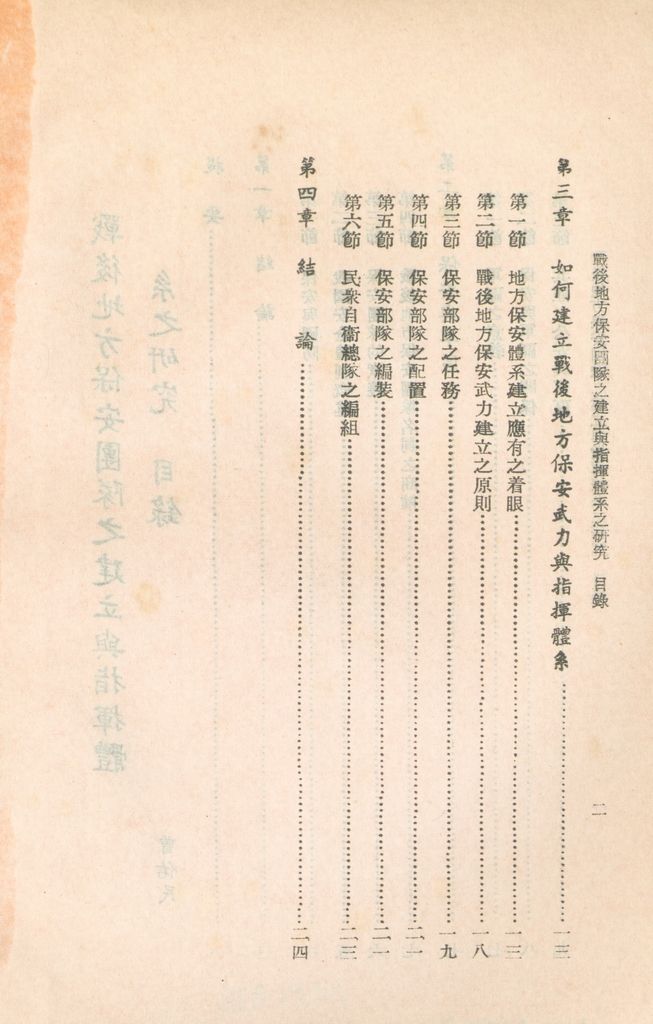 戰後地方保安團隊之建立與指揮體系之研究 目錄 二
第三章 如何建立戰後地方保安武力與指揮體系……一三
第一節 地方保安體系建立應有之着眼……一三
第二節 戰後地方保安武力建立之原則……一八
第三節 保安部隊之任務……一九
第四節 保安部隊之配置……二一
第五節 保安部隊之編裝……二一
第六節 民衆自衞總隊之編組……二三
第四章 結 論……二四